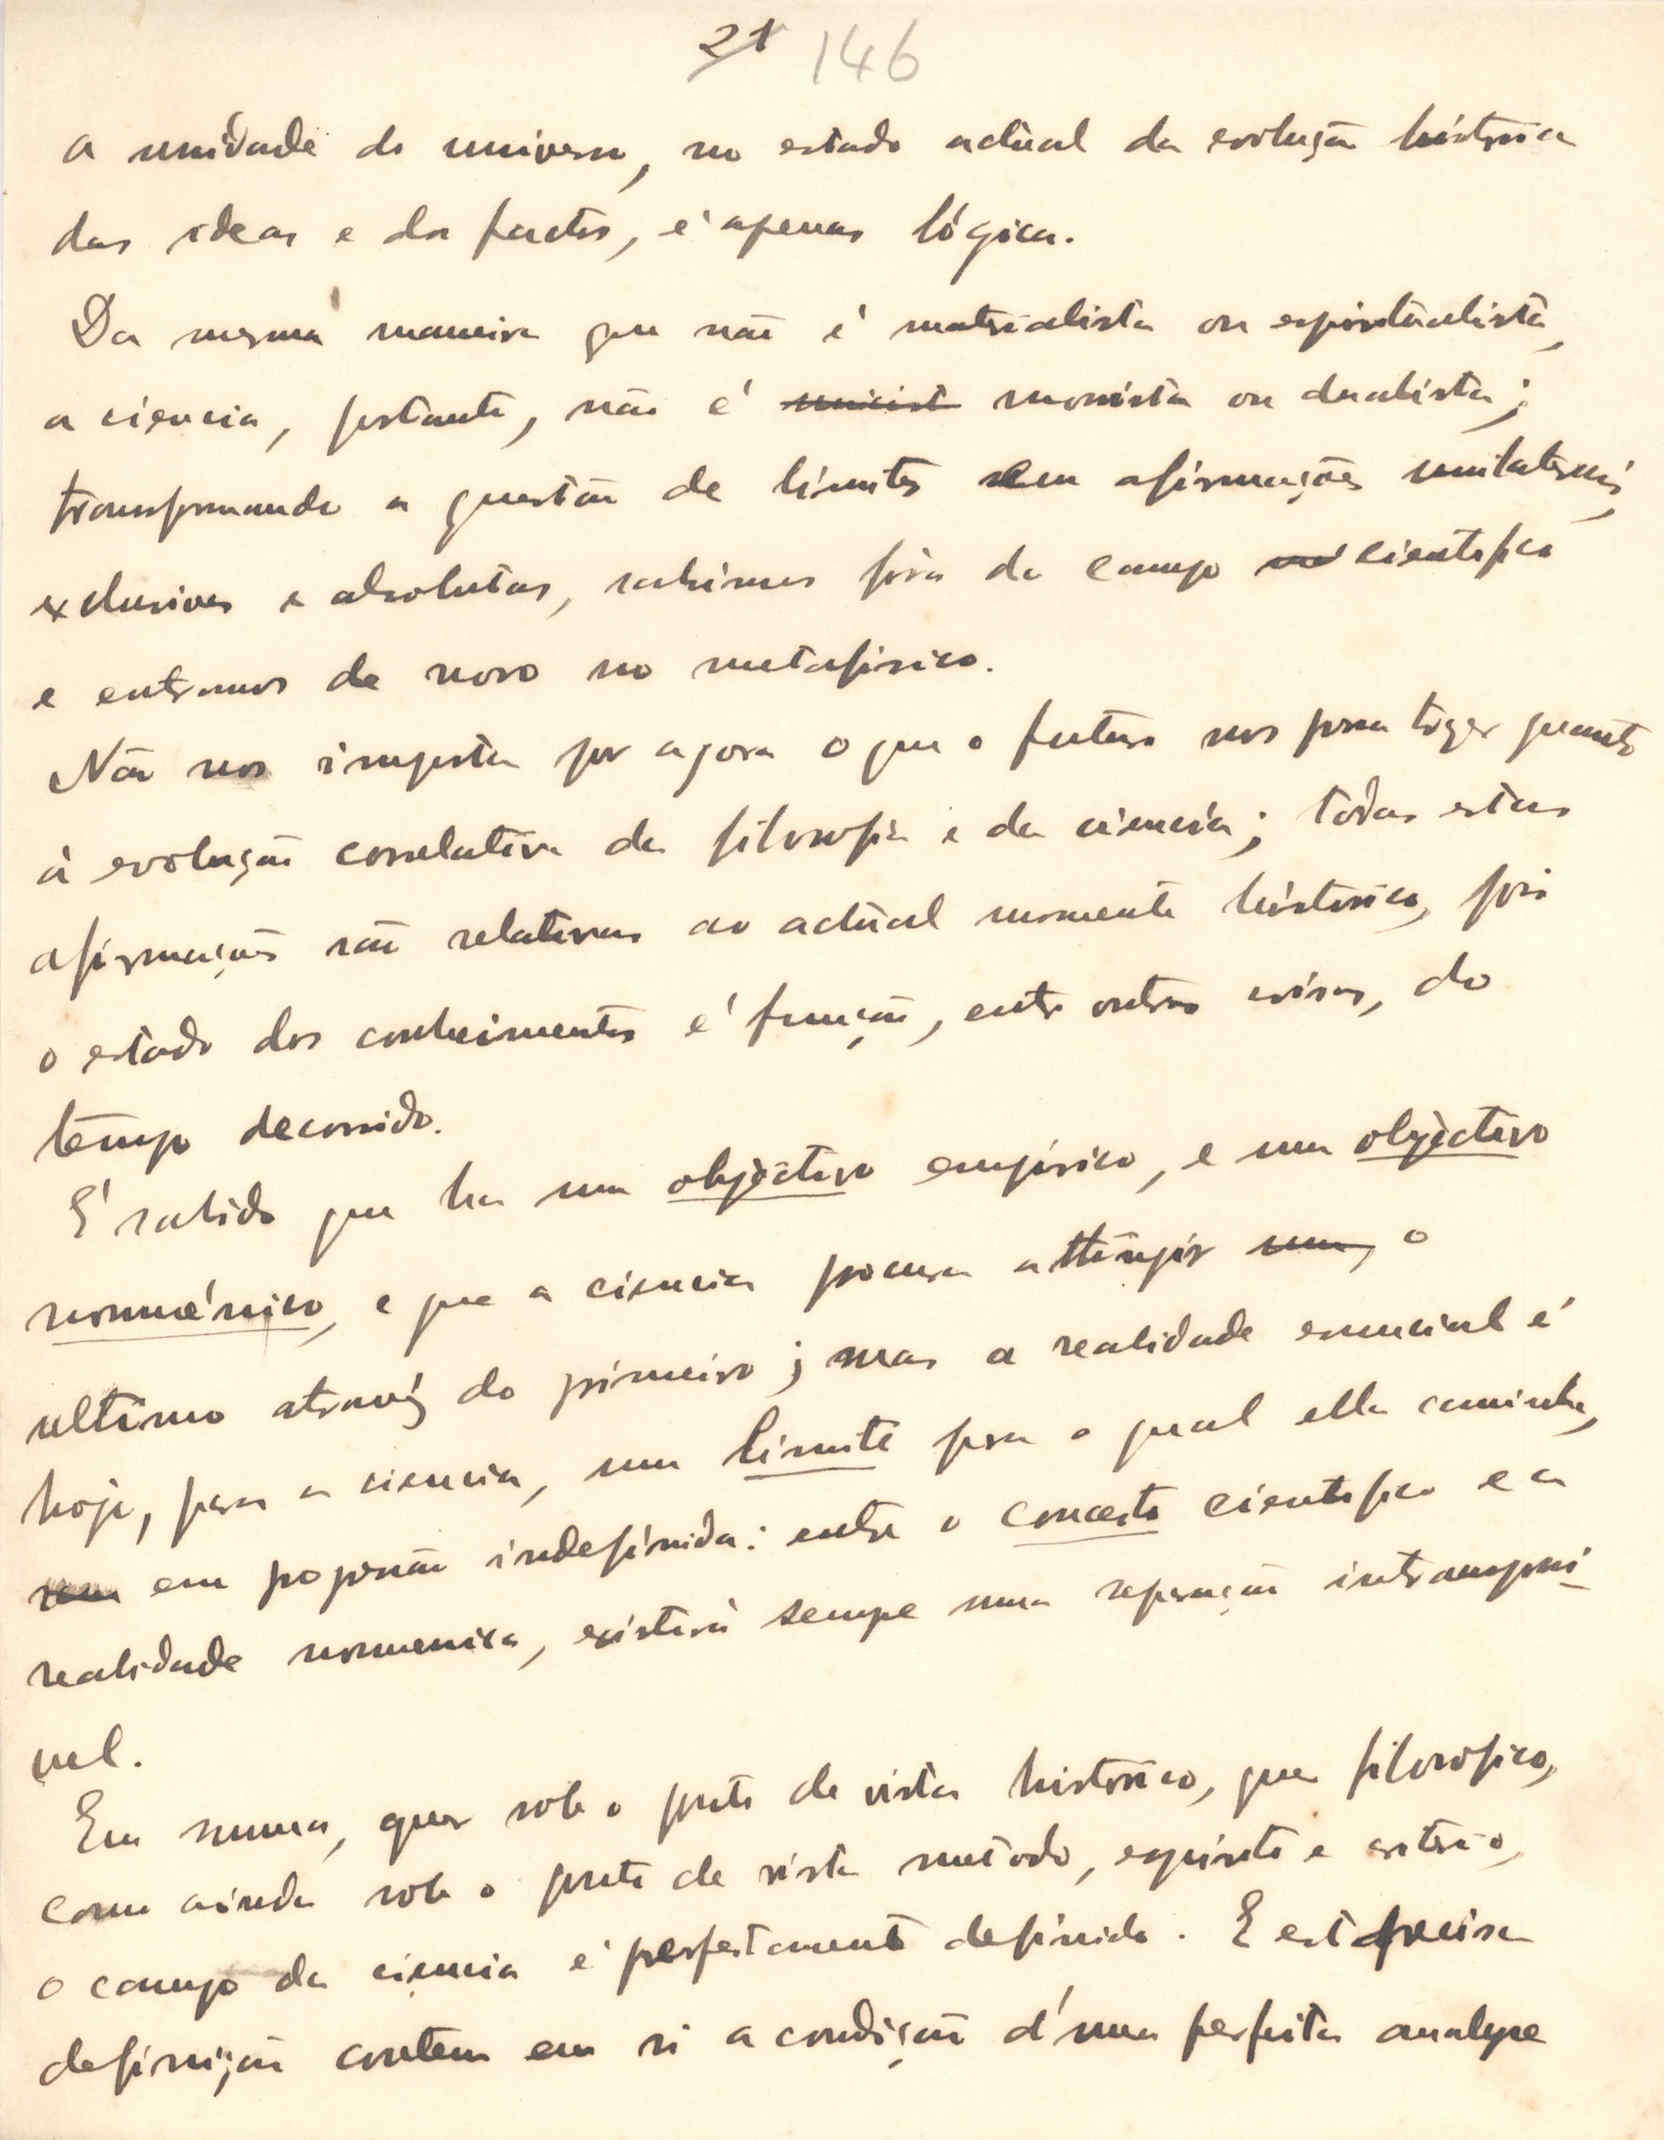 21 146
a unidade do universo, no estado actual da evolução histórica
das ideas e dos factos, é apenas lógica.
Da mesma maneira que não é materialista ou espiritualista,
a ciencia, portanto, não é monista ou dualista;
transformando a questão de limites em afirmações unilaterais,
exclusivas e absolutas, sahimos fóra do campo cientifico
e entramos de novo no metafisico.
Não nos importa por agora o que o futuro nos possa trazer quanto
á evolução correlativa da filosofia e da ciencia; todas estas
afirmações são relativas ao actual momento histórico, pois
o estado dos conhecimentos é função, entre outras coisas, do
tempo decorrido.
É sabido que ha um objectivo empirico, e um objectivo
noumènico, e que a ciencia procura attingir o
ultimo através do primeiro; mas a realidade essencial é
hoje, para a ciencia, um limite para o qual ella caminha,
em progressão indefinida: entre o conceito cientifico e a
realidade noumenica, existirá sempre uma separação intransponi-
vel.
Em summa, quer sob o ponto de vista historico, quer filosofico,
como ainda sob o ponto de vista metodo, espirito e criterio,
o campo da ciencia é perfeitamente definido. E esta precisa
definição contem em si a condição d'uma perfeita analyse